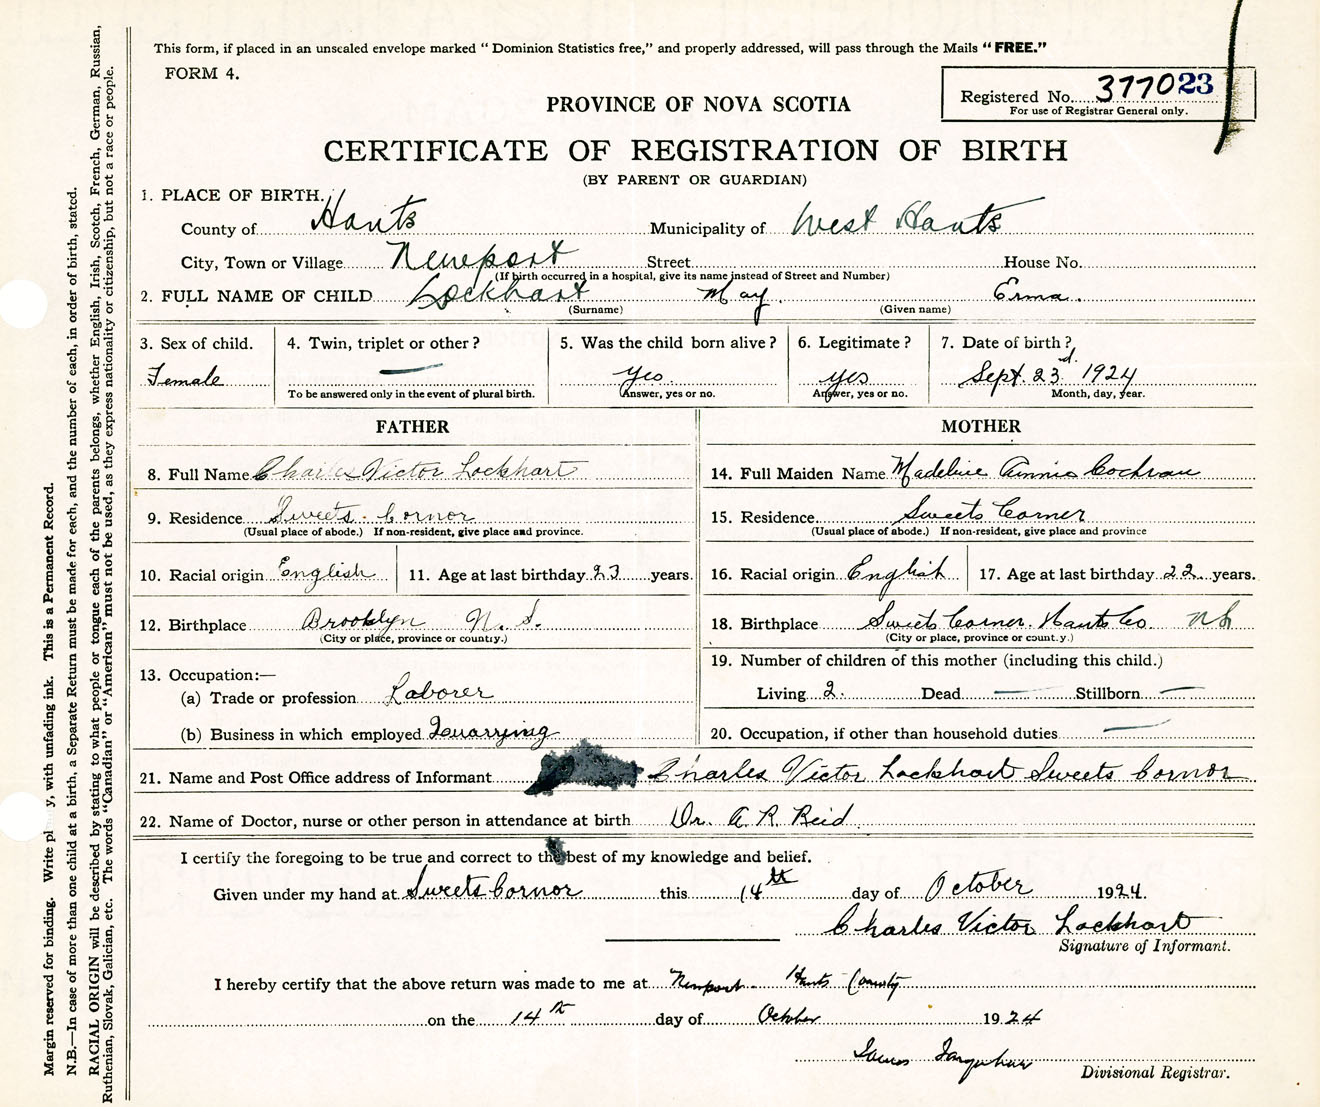 This form, if placed in an unsealed envelope marked "Dominion Statistics free," and properly addressed, will pass through the Mails "FREE."
FORM 4.
Registered No. 377023
For use of Registrar General only.
PROVINCE OF NOVA SCOTIA
CERTIFICATE OF REGISTRATION OF BIRTH
(BY PARENT OR GUARDIAN)
1. PLACE OF BIRTH.
County of Hants Municipality of West Hants
City, Town or Village Newport Street House No.
(If birth occurred in a hospital, give its name instead of Street and Number)
2. FULL NAME OF CHILD Lockhart May Erma.
(Surname) (Given name)
3. Sex of child. 4. Twin, triplet or other? 5. Was the child born alive? 6. Legitimate? 7. Date of birth?
Female — yes. yes Sept. 23d. 1924
To be answered only in the event of plural birth. Answer, yes or no. Answer, yes or no. Month, day, year.
FATHER MOTHER
8. Full Name Charles Victor Lockhart 14. Full Maiden Name Madeline Annie Cochran
9. Residence Sweets Cornor 15. Residence Sweets Corner
(Usual place of abode.) If non-resident, give place and province. (Usual place of abode.) If non-resident, give place and province
10. Racial origin English 11. Age at last birthday 23 years. 16. Racial origin English 17. Age at last birthday 22 years.
12. Birthplace Brooklyn N. S. 18. Birthplace Sweets Corner. Hants Co. NS
(City or place, province or country.) (City or place, province or count.y.)
19. Number of children of this mother (including this child.)
13. Occupation:—
(a) Trade or profession Laborer Living 2. Dead — Stillborn —
(b) Business in which employed Quarrying 20. Occupation, if other than household duties —
21. Name and Post Office address of Informant Charles Victor Lockhart Sweets Cornor
22. Name of Doctor, nurse or other person in attendance at birth Dr. A. R. Reid.
I certify the foregoing to be true and correct to the best of my knowledge and belief.
Given under my hand at Sweets Cornor this 14th day of October 1924.
Charles Victor Lockhart
Signature of Informant.
I hereby certify that the above return was made to me at Newport Hants County
on the 14th day of October 1924
James Farquhar
Divisional Registrar.
Margin reserved for binding. Write pl y, with unfading ink. This is a Permanent Record.
N.B.—In case of more than one child at a birth, a Separate Return must be made for each, and the number of each, in order of birth, stated.
RACIAL ORIGIN will be described by stating to what people or tongue each of the parents belongs, whether English, Irish, Scotch, French, German, Russian,
Ruthenian, Slovak, Galician, etc. The words "Canadian" or "American" must not be used, as they express nationality or citizenship, but not a race or people.